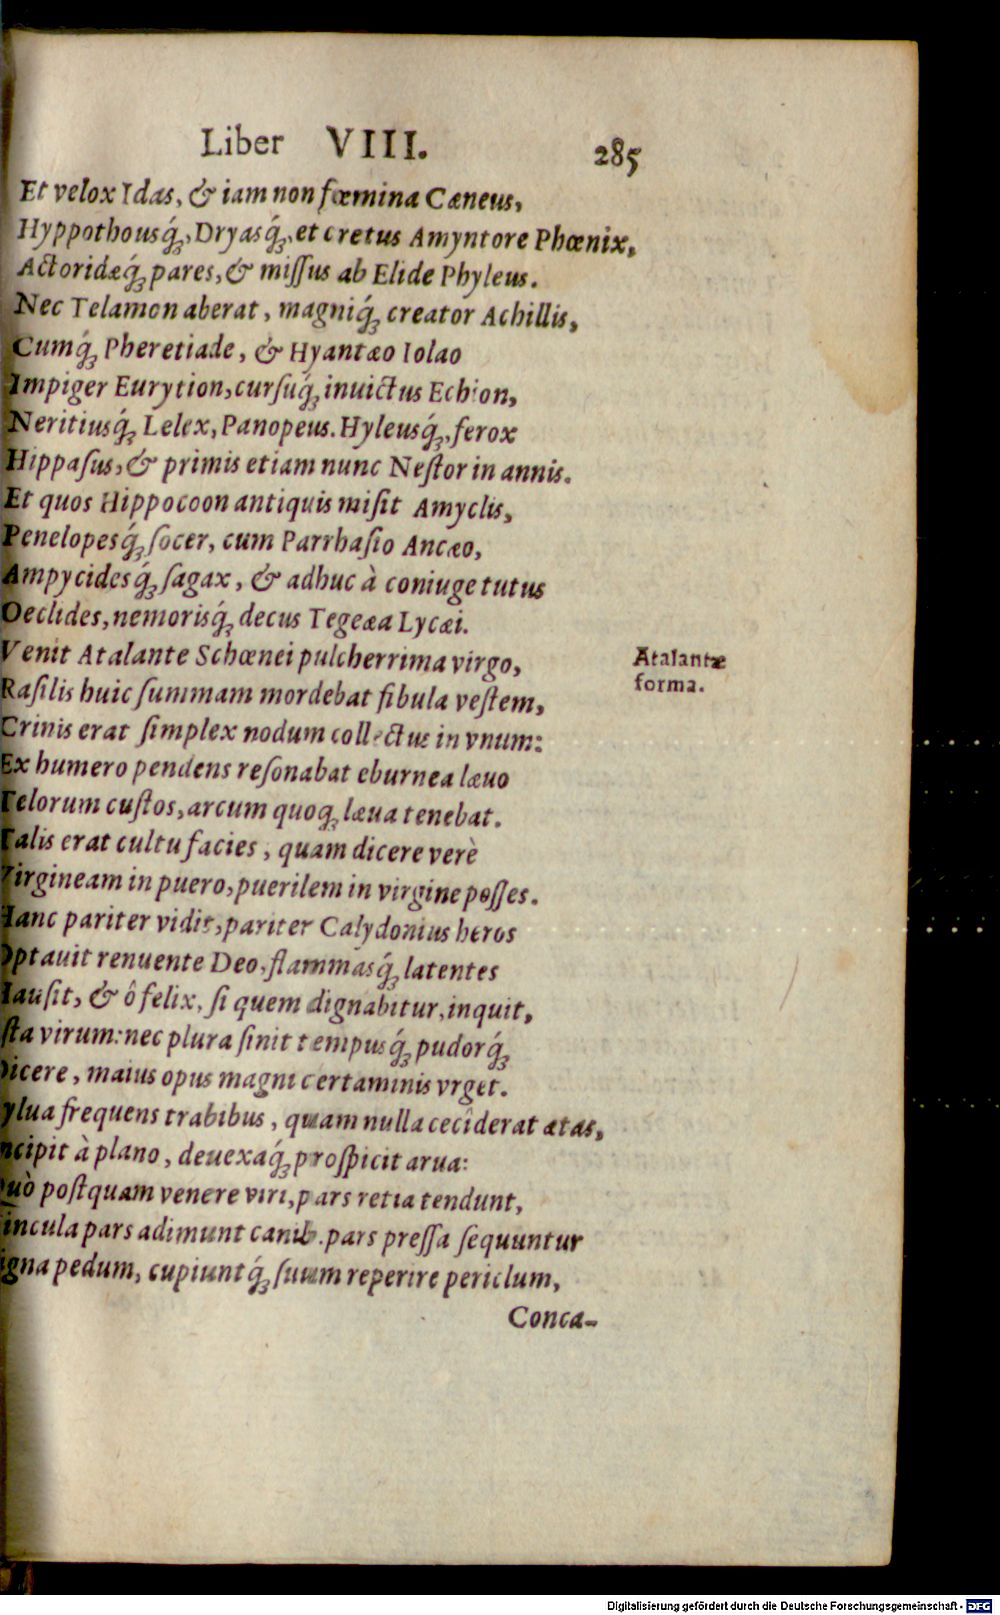 Liber VIII. 285
Et velox Idas, & iam non fœmina Cæneus,
Hyppothousq́ꝫ, Dryasq́ꝫ, et cretus Amyntore Phœnix,
Actoridæq́ꝫ pares, & miſſus ab Elide Phyleus.
Nec Telamon aberat, magniq́ꝫ creator Achillis,
Cumq́ꝫ Pheretiade, & Hyantæo Iolao
Impiger Eurytion, curſuq́ꝫ inuictus Echion,
Neritiusq́ꝫ Lelex, Panopeus. Hyleusq́ꝫ, ferox
Hippaſus, & primis etiam nunc Neſtor in annis.
Et quos Hippocoon antiquis miſit Amyclis,
Penelopesq́ꝫ ſocer, cum Parrhaſio Ancæo,
Ampycidesq́ꝫ ſagax, & adhuc à coniuge tutus
Oeclides, nemorisq́ꝫ decus Tegeæa Lycæi.
Venit Atalante Schœnei pulcherrima virgo,
Atalantæ
forma.
Raſilis huic ſummam mordebat fibula veſtem,
Crinis erat ſimplex nodum collectus in vnum:
Ex humero pendens reſonabat eburnea læuo
Telorum cuſtos, arcum quoqꝫ læua tenebat.
Talis erat cultu facies, quam dicere verè
Virgineam in puero, puerilem in virgine poſſes.
Hanc pariter vidit, pariter Calydonius heros
Optauit renuente Deo, flammasq́ꝫ latentes
Hauſit, & ô felix, ſi quem dignabitur, inquit,
ſta virum: nec plura ſinit tempusq́ꝫ pudorq́ꝫ
Dicere, maius opus magni certaminis vrget.
ylua frequens trabibus, quam nulla ceciderat ætas,
ncipit à plano, deuexaq́ꝫ proſpicit arua:
Quò poſtquam venere viri, pars retia tendunt,
incula pars adimunt canib. pars preſſa ſequuntur
igna pedum, cupiuntq́ꝫ ſuum reperire periclum,
Conca-
Digitalisierung gefördert durch die Deutsche Forschungsgemeinschaft - DFG